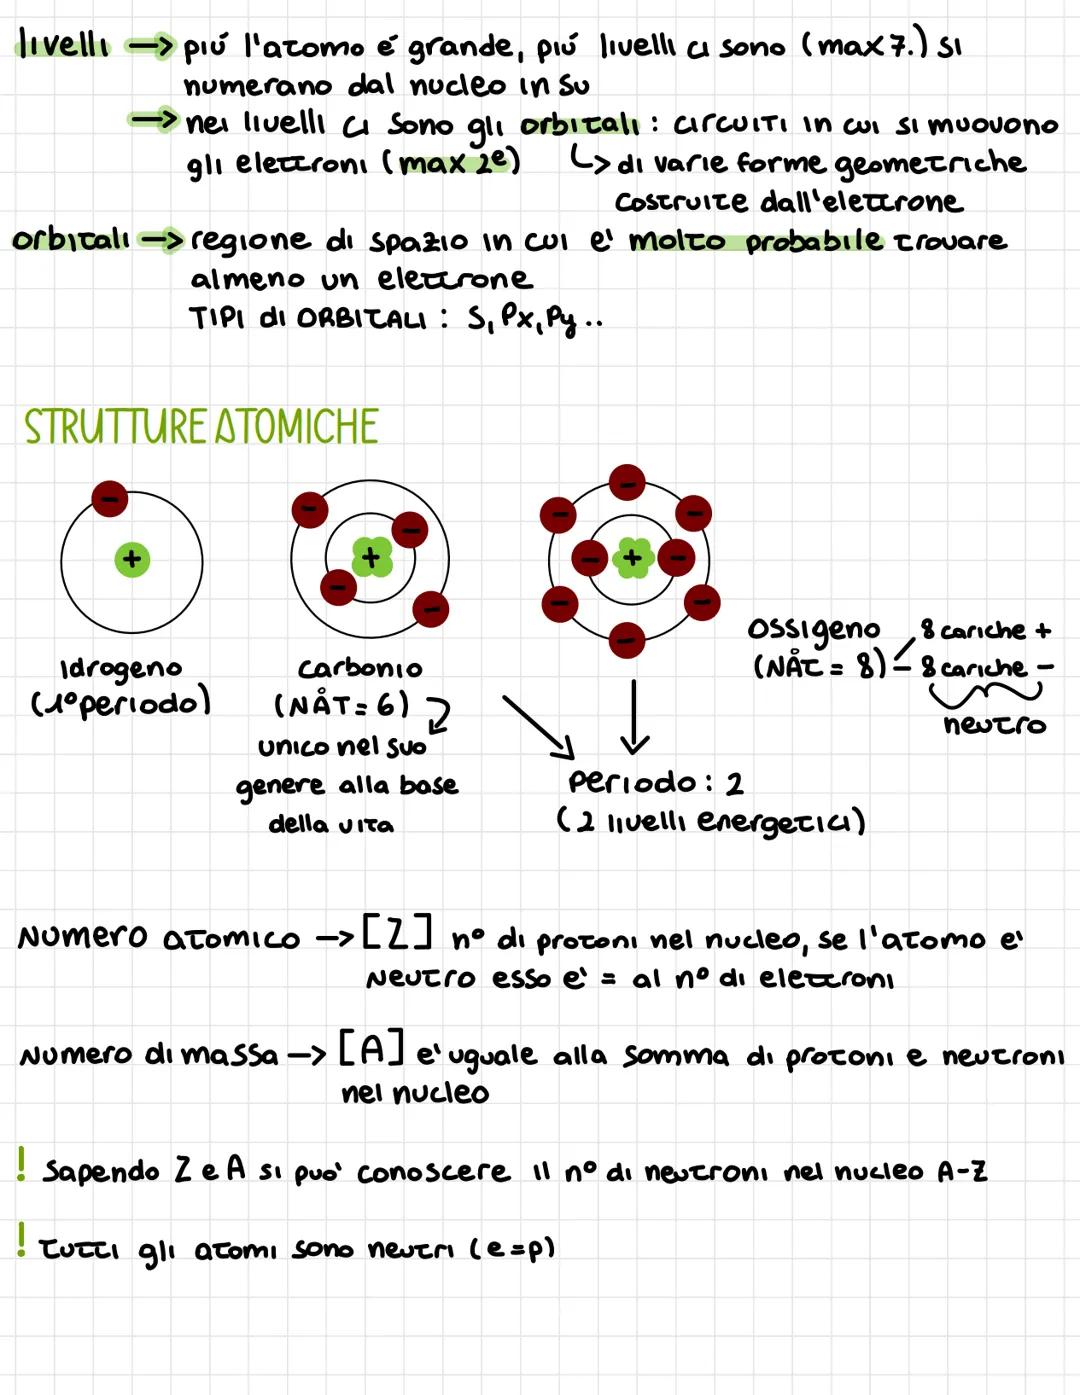 livelli → più l'atomo é grande, piú livelli ci sono (max 7.) si
numerano dal nucleo in su
→ nei livelli ci sono gli orbitali : circuiti in cui si muovono
gli elettroni (max 2e) ↳ di varie forme geometriche
costruite dall'elettrone
orbitali → regione di spazio in cui e' molto probabile trovare
almeno un elettrone
TIPI di ORBITALI : S, Px, Py ..
STRUTTURE ATOMICHE
-
+
-
-
+
-
-
-
-
-
-
+
-
-
-
-
Idrogeno
(1° periodo)
carbonio
(NÅT = 6)
unico nel suo
genere alla base
della vita
Ossigeno
(NÅT = 8)
8 cariche +
8 cariche -
neutro
Periodo : 2
(2 livelli energetici)
Numero atomico → [Z] n° di protoni nel nucleo, se l'atomo e'
neutro esso e' = al n° di elettroni
Numero di massa → [A] e' uguale alla somma di protoni e neutroni
nel nucleo
! Sapendo Z e A si puo' conoscere il n° di neutroni nel nucleo A-Z
! Tutti gli atomi sono neutri (e=p)